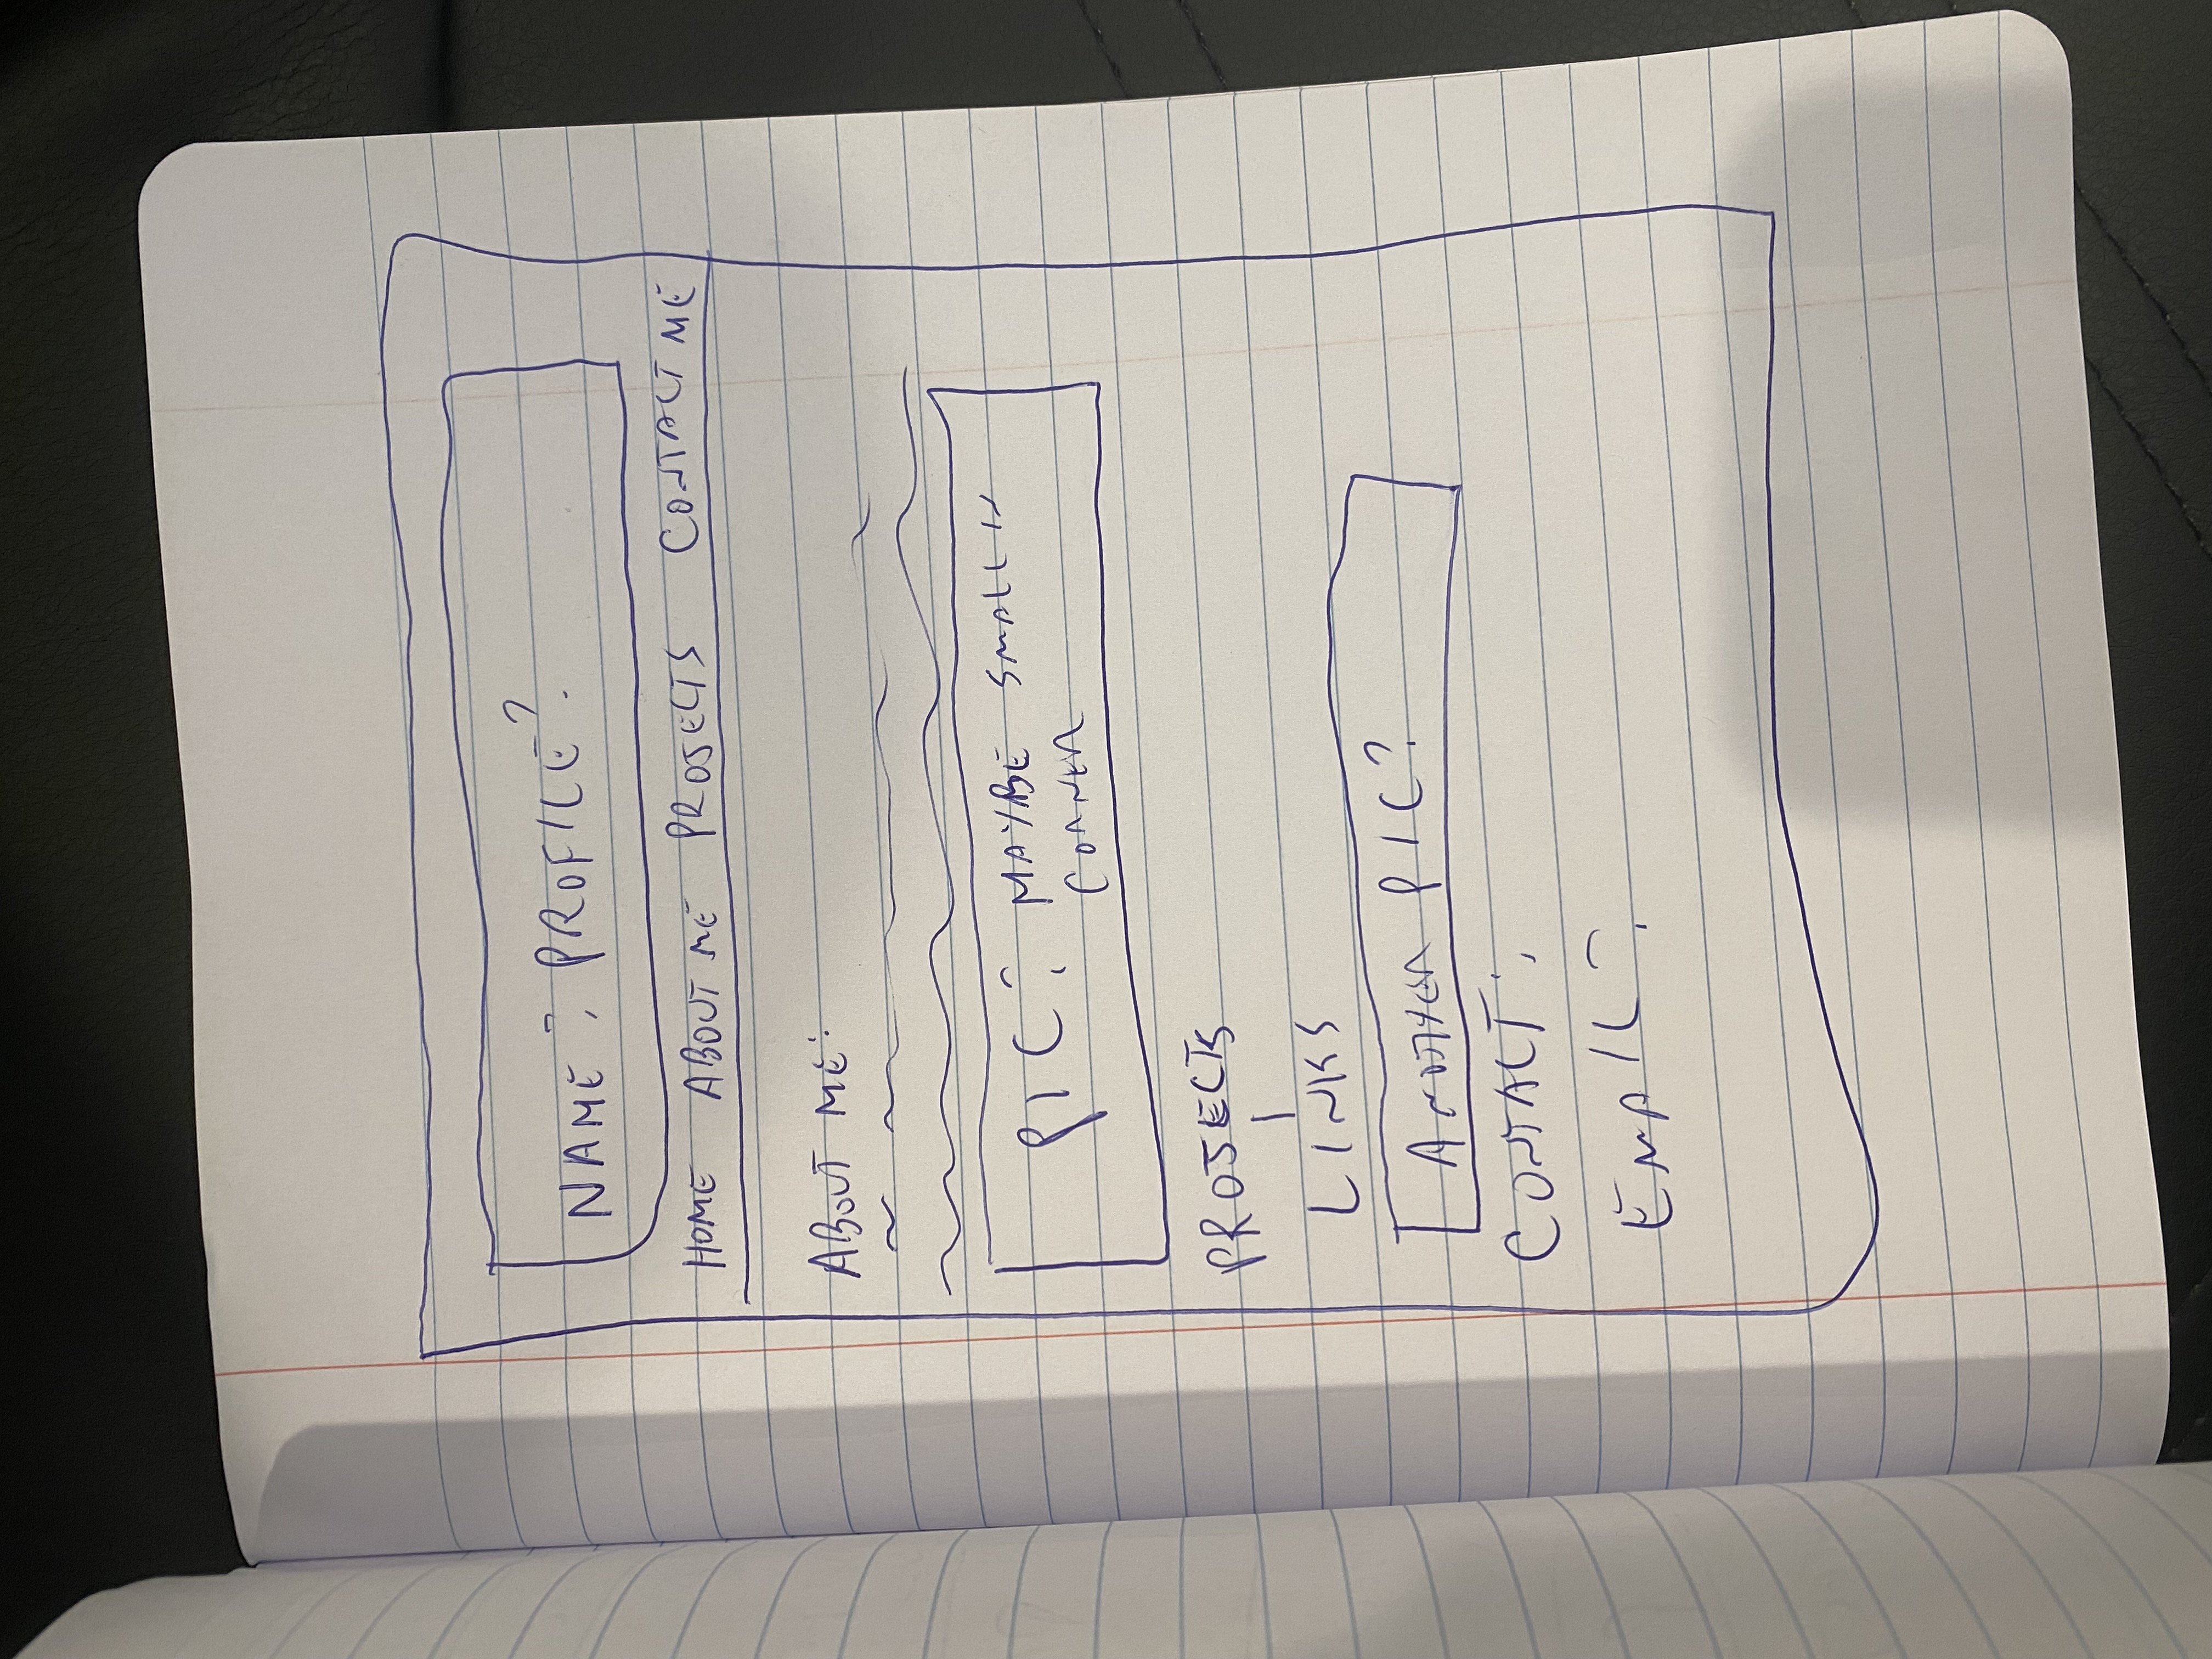 NAME? PROFILE?
HOME ABOUT ME PROJECTS CONTACT ME
ABOUT ME:
PIC? MAYBE SMALL IN
CORNER
PROJECTS
LINKS
ANOTHER PIC?
CONTACT:
EMAIL?